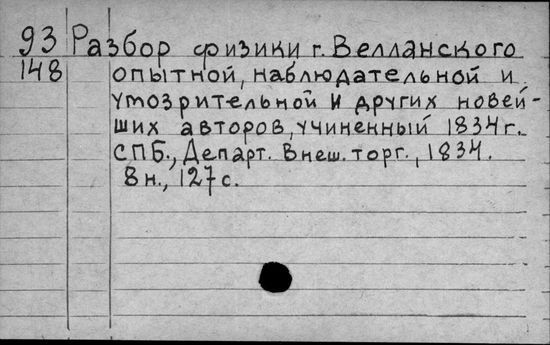 93 Разбор физики г. Велланского
148 опытной, наблюдательной и
умозрительной и других новей-
ших авторов, учиненный 1834 г.
СПБ., Департ. Внеш. торг., 1834.
8н., 127 с.